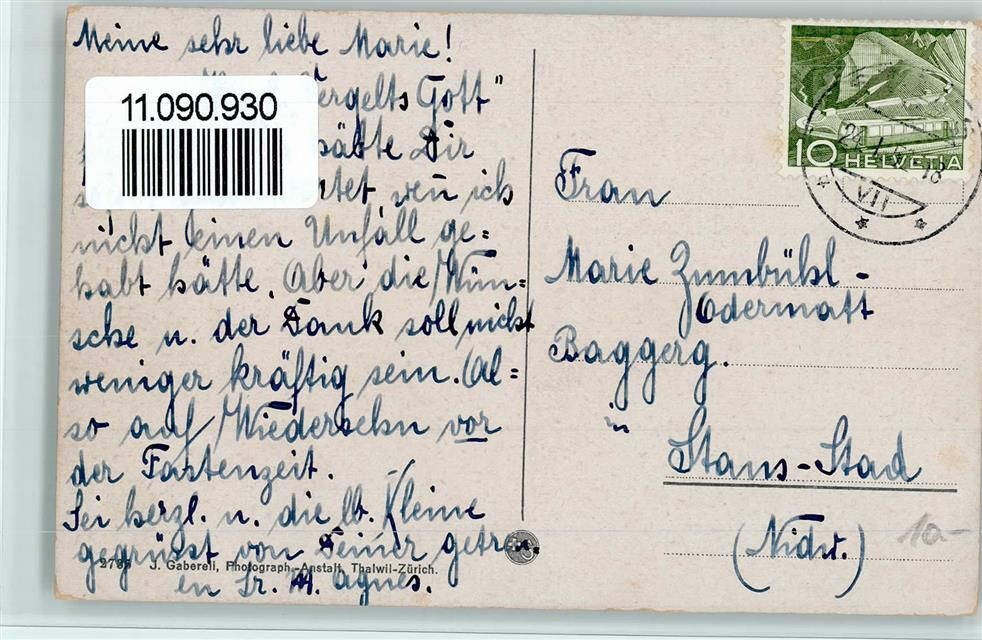 Meine sehr liebe Marie!
11.090.930
Vergelts Gott"
hätte Dir
wen ich
nicht keinen Unfall ge=
habt hätte. Aber die Wün=
sche u. der Dank soll nicht
weniger kräftig sein. Al=
so auf Wiedersehn vor
der Fastenzeit.
Sei herzl. u. die lb. Kleine
gegrüsst von Deiner getreu.
en Sr. M. Agnes.
2787 J. Gaberell, Photograph.-Anstalt, Thalwil-Zürich.
10 HELVETIA
VII
Frau
Marie Zumbühl-
Odermatt
Baggerg.
in
Stans-Stad
(Nidw.)
10-